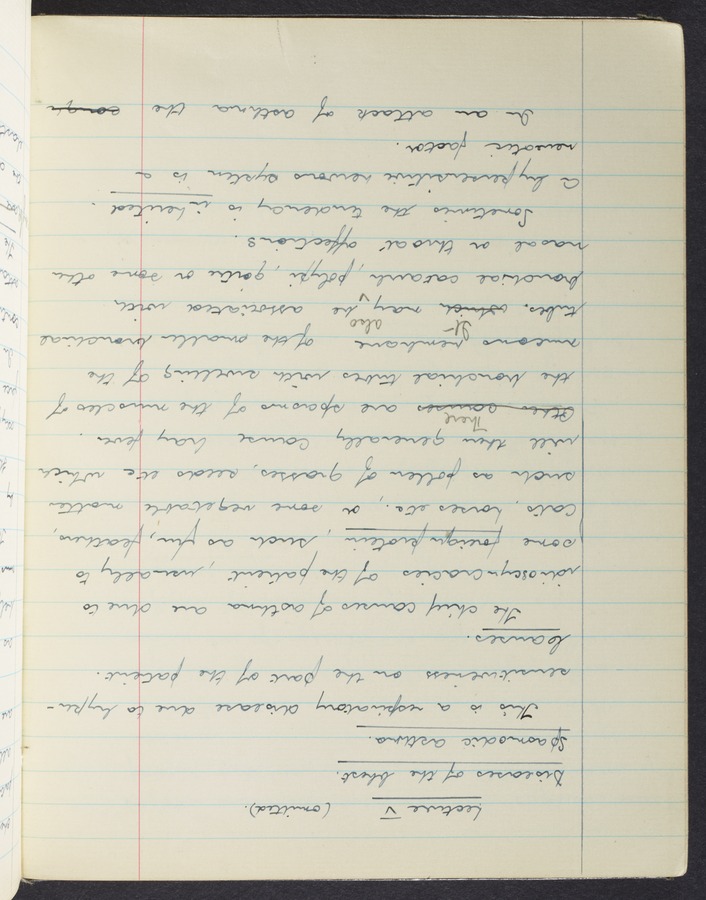 Lecture V (omitted).
Diseases of the Chest.
Spasmodic asthma.
This is a respiratory disease due to hyper-
sensitiveness on the part of the patient.
Causes.
The chief causes of asthma are due to
idioscyncracies of the patient, usually to
some foreign protein, such as fur, feathers,
Cats, horses etc., or some vegetable matter
such as pollen of grasses, seeds etc which
will then generally cause hay fever.
Other causes There are spasms of the muscles of
the bronchial tubes with swelling of the
mucous membrane of the smaller bronchial
tubes. which It may also be associated with
bronchial catarrh, polypi, goitre or some other
nasal or throat affections.
Sometimes the tendency is inherited.
A hypersensitive nervous system is a
neurotic factor.
In an attack of asthma the cough